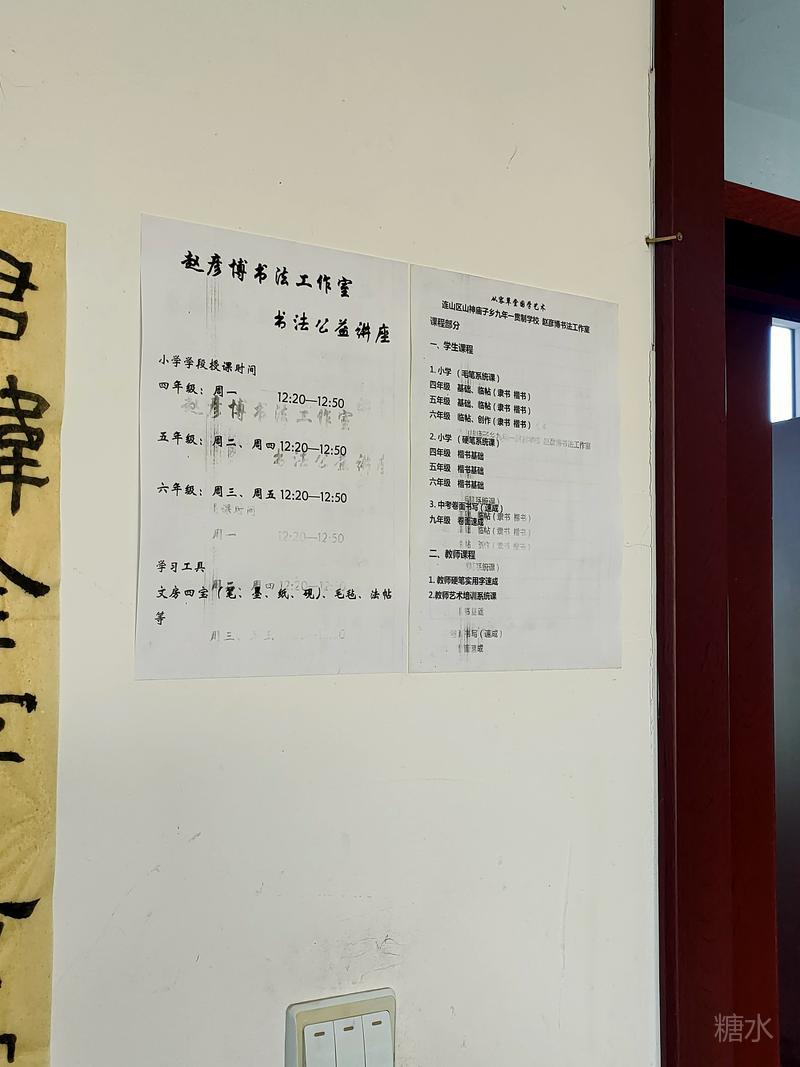 赵彦博书法工作室
书法公益讲座
小学学段授课时间
四年级：周一 12:20—12:50
五年级：周二、周四 12:20—12:50
六年级：周三、周五 12:20—12:50
学习工具
文房四宝（笔、墨、纸、砚）、毛毡、法帖
等
从容草堂国学艺术
连山区山神庙子乡九年一贯制学校 赵彦博书法工作室
课程部分
一、学生课程
1. 小学 （毛笔系统课）
四年级 基础、临帖（隶书 楷书）
五年级 基础、临帖（隶书 楷书）
六年级 临帖、创作（隶书 楷书）
2. 小学 （硬笔系统课）
四年级 楷书基础
五年级 楷书基础
六年级 楷书基础
3. 中考卷面书写（速成）
九年级 卷面速成
二、教师课程
1. 教师硬笔实用字速成
2.教师艺术培训系统课
糖水